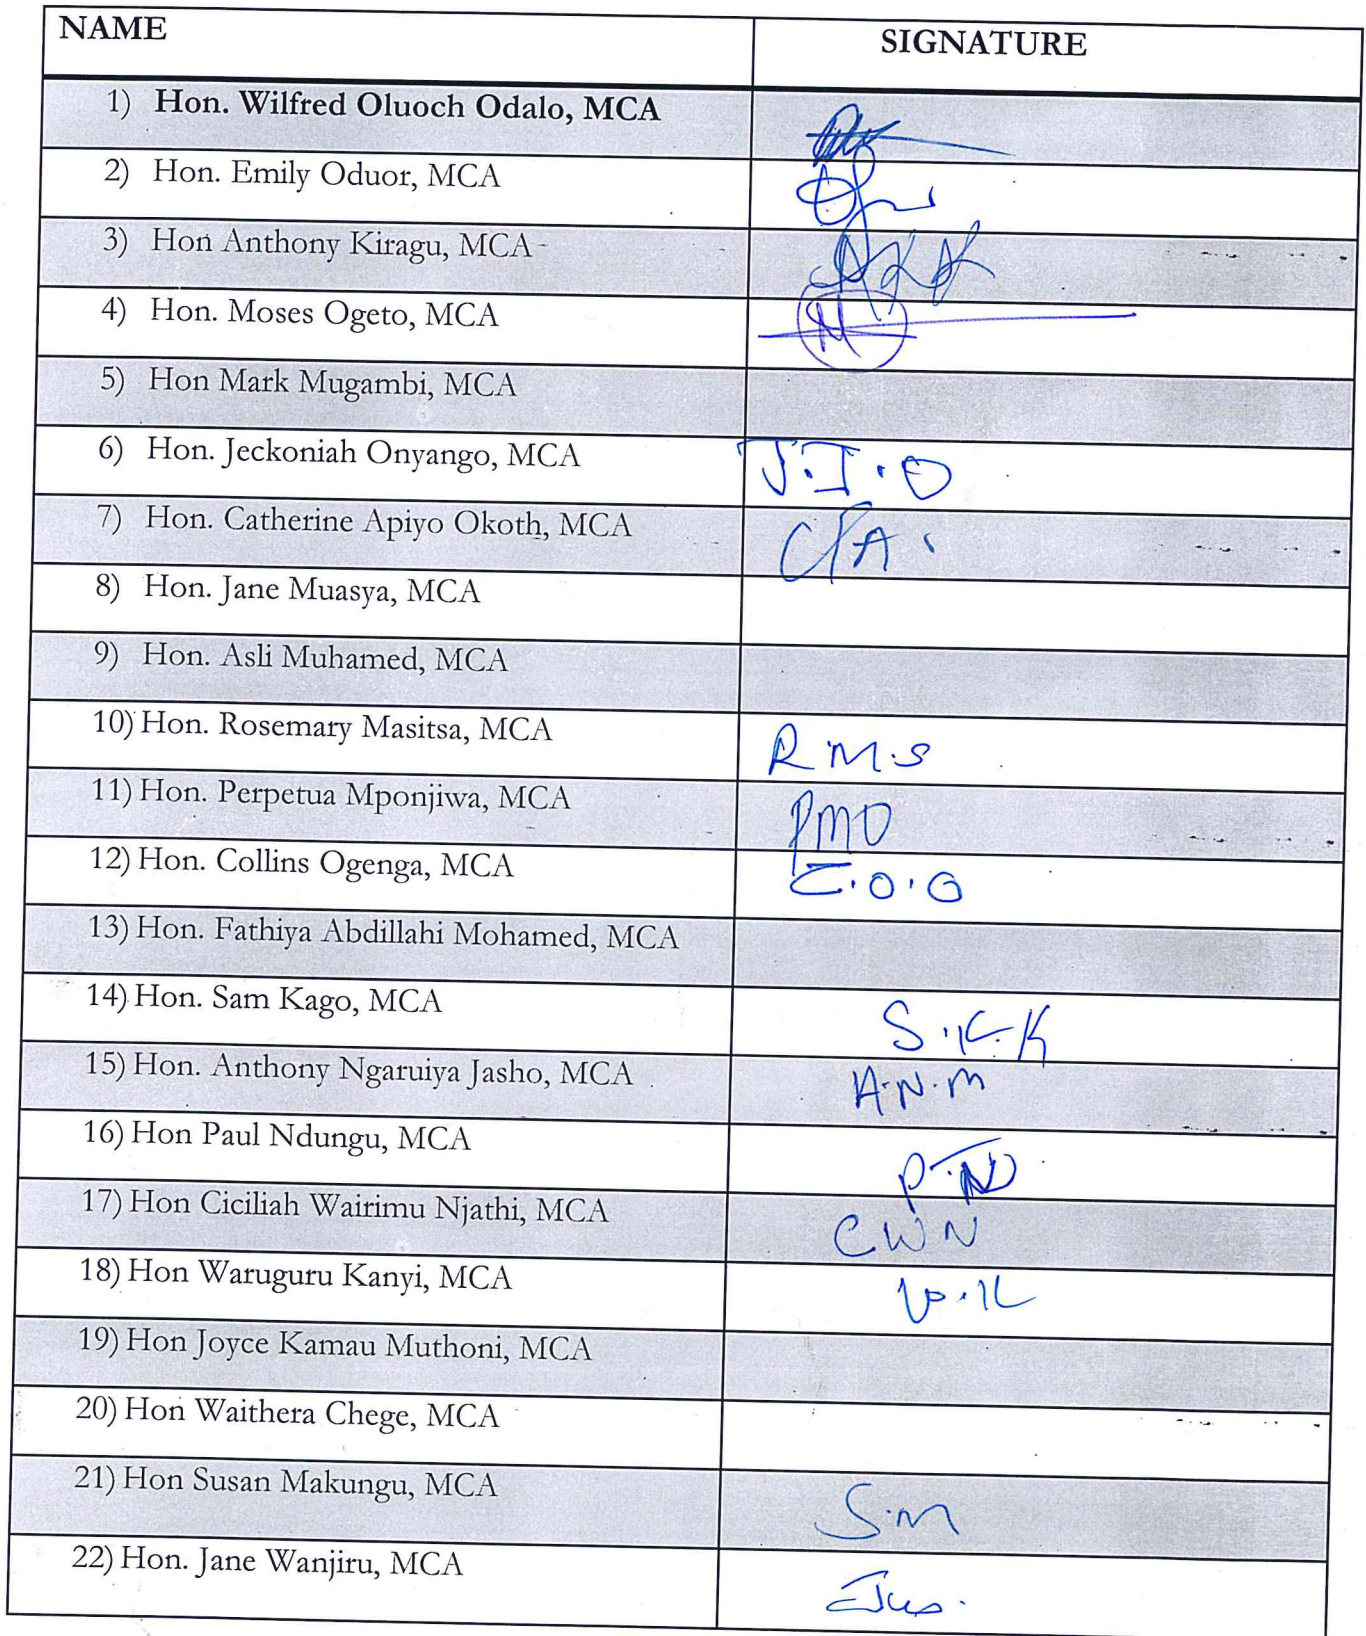 NAME SIGNATURE
1) Hon. Wilfred Oluoch Odalo, MCA
2) Hon. Emily Oduor, MCA
3) Hon Anthony Kiragu, MCA
4) Hon. Moses Ogeto, MCA
5) Hon Mark Mugambi, MCA
6) Hon. Jeckoniah Onyango, MCA J.I.O
7) Hon. Catherine Apiyo Okoth, MCA
8) Hon. Jane Muasya, MCA
9) Hon. Asli Muhamed, MCA
10) Hon. Rosemary Masitsa, MCA R.M.S
11) Hon. Perpetua Mponjiwa, MCA PMO
12) Hon. Collins Ogenga, MCA C.O.O
13) Hon. Fathiya Abdillahi Mohamed, MCA
14) Hon. Sam Kago, MCA S.K.K
15) Hon. Anthony Ngaruiya Jasho, MCA A.N.M
16) Hon Paul Ndungu, MCA
17) Hon Ciciliah Wairimu Njathi, MCA CWN
18) Hon Waruguru Kanyi, MCA W.K
19) Hon Joyce Kamau Muthoni, MCA
20) Hon Waithera Chege, MCA
21) Hon Susan Makungu, MCA S.M
22) Hon. Jane Wanjiru, MCA